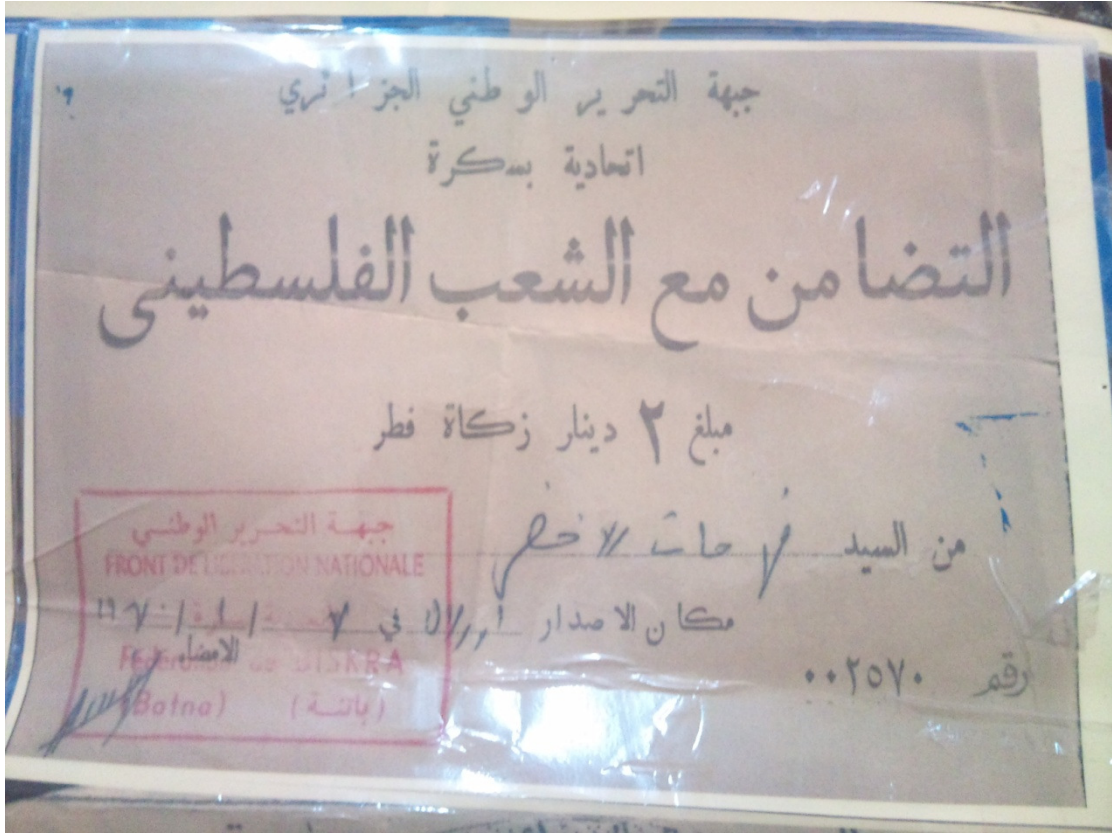 جبهة التحرير الوطني الجزائري
اتحادية بسكرة
التضامن مع الشعب الفلسطيني
مبلغ ٢ دينار زكاة فطر
من السيد فرحات الاخضر
مكان الاصدار في
الامضاء
رقم ٠٠٢٥٧٠
جبهة التحرير الوطني
FRONT DE LIBERATION NATIONALE
BISKRA
(Batna) (باتنة)